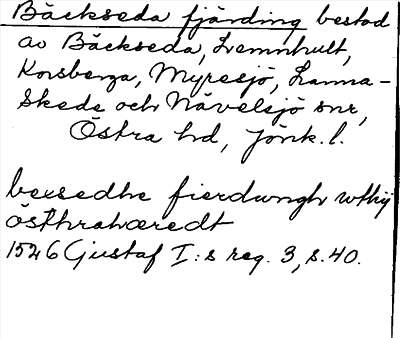 Bäckseda fjärding bestod
av Bäckseda, Lemnhult,
Korsberga, Myresjö, Lanna-
Skede och Nävelsjö snr,
Östra hd, Jönk. l.
bexsedhe fierdwngh wthij
östhrahæredt
1526 Gustaf I:s reg. 3, s. 40.